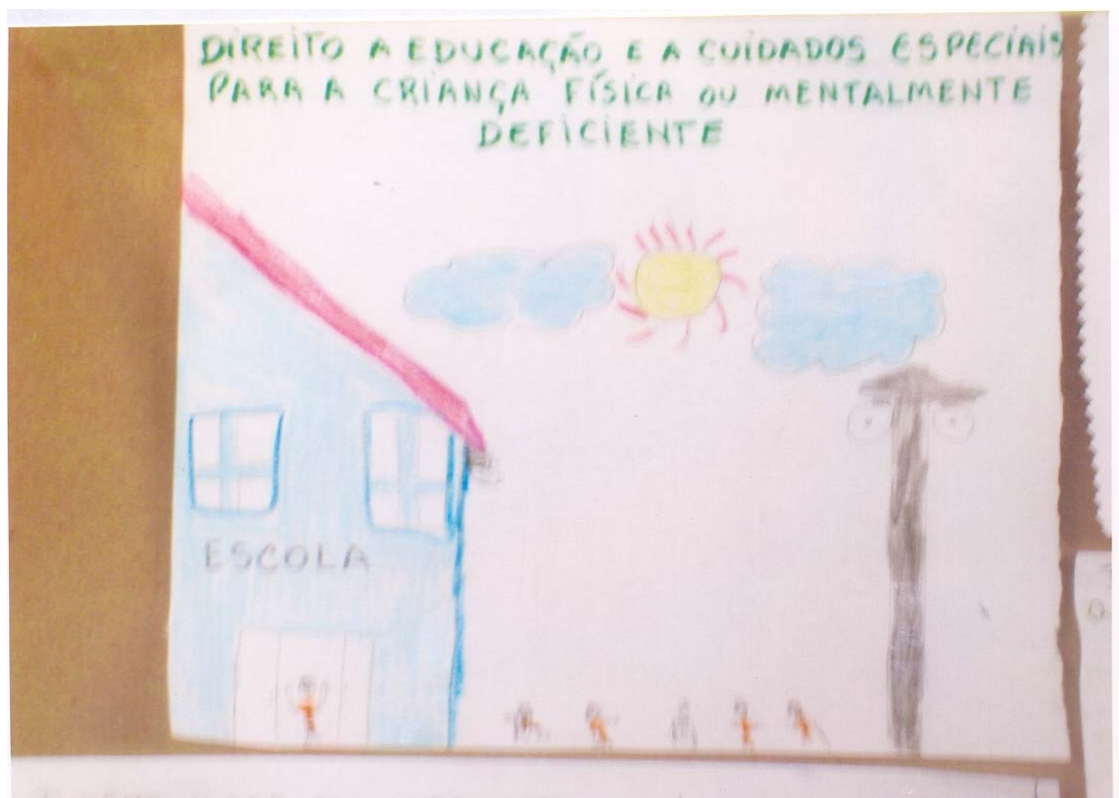 DIREITO A EDUCAÇÃO E A CUIDADOS ESPECIAIS
PARA A CRIANÇA FÍSICA OU MENTALMENTE
DEFICIENTE
ESCOLA